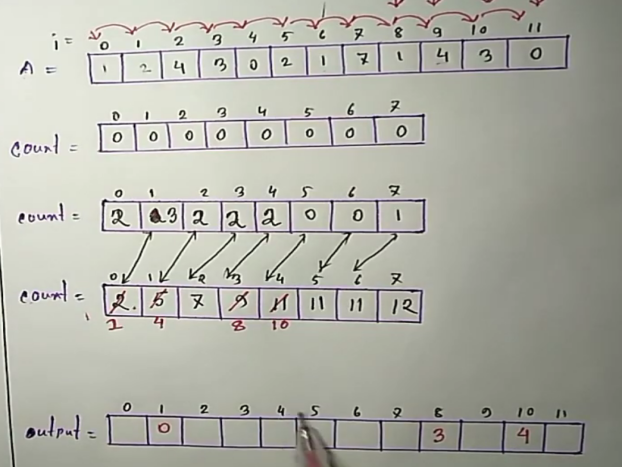 i = 0 1 2 3 4 5 6 7 8 9 10 11
A = 1 2 4 3 0 2 1 7 1 4 3 0
0 1 2 3 4 5 6 7
count = 0 0 0 0 0 0 0 0
0 1 2 3 4 5 6 7
count = 2 3 2 2 2 0 0 1
0 1 2 3 4 5 6 7
count = 2 5 7 9 11 11 11 12
1 4 8 10
0 1 2 3 4 5 6 7 8 9 10 11
output = 0 3 4